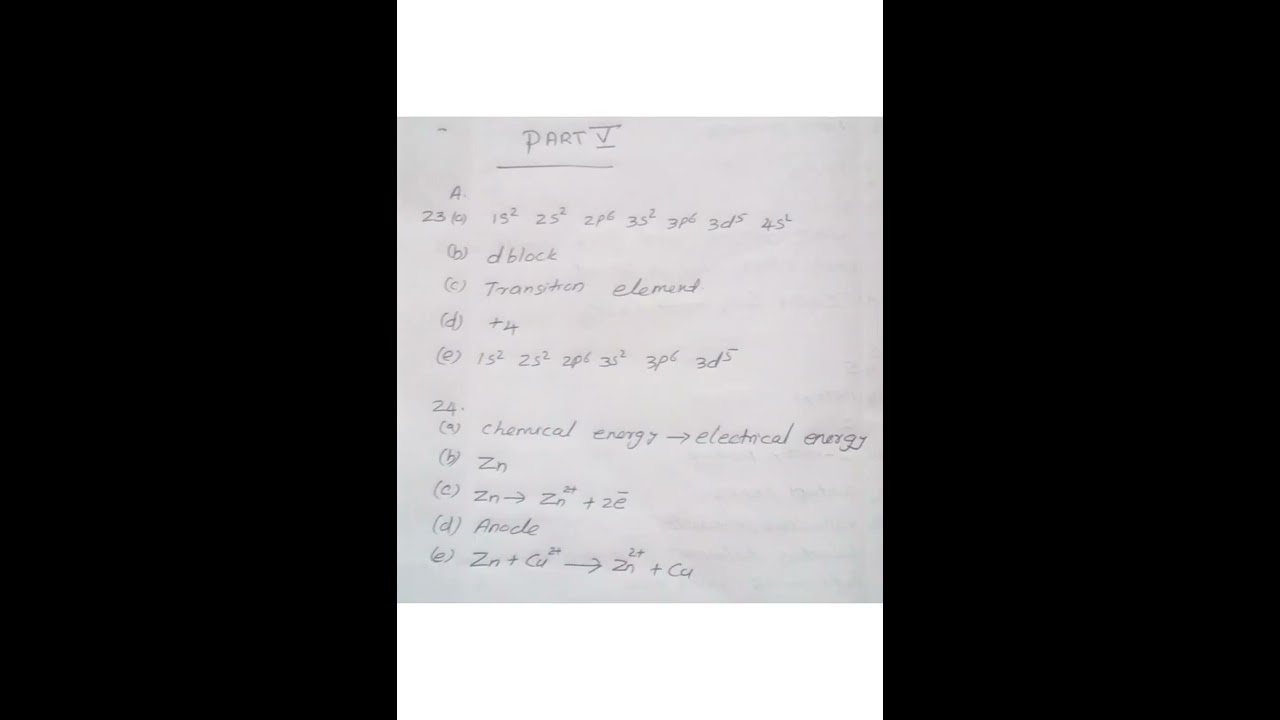 PART V
A.
23 (a) 1s² 2s² 2p⁶ 3s² 3p⁶ 3d⁵ 4s²
(b) d block
(c) Transition element
(d) +4
(e) 1s² 2s² 2p⁶ 3s² 3p⁶ 3d⁵
24.
(a) chemical energy → electrical energy
(b) Zn
(c) Zn → Zn²⁺ + 2e⁻
(d) Anode
(e) Zn + Cu²⁺ → Zn²⁺ + Cu